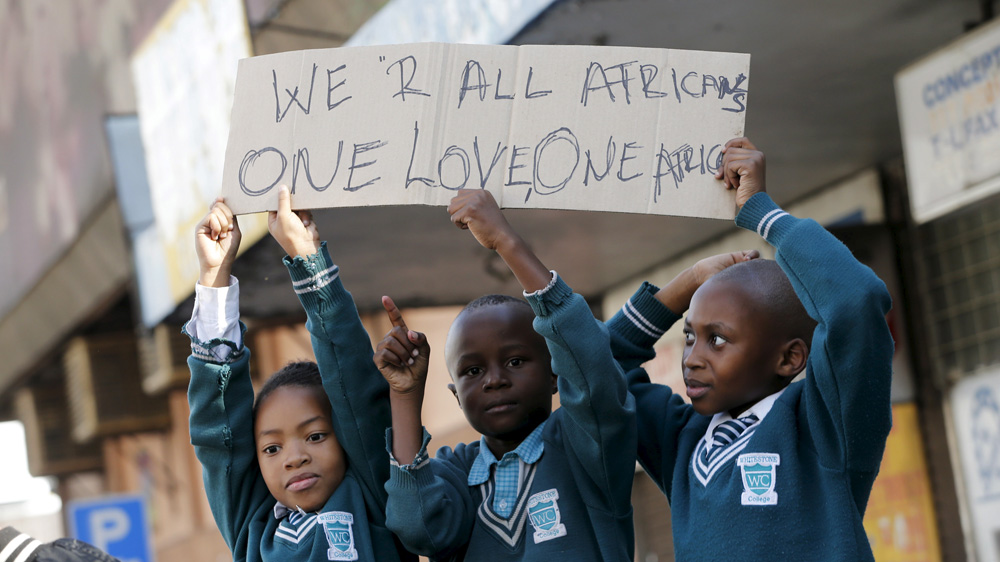 WE 'R ALL AFRICANS
ONE LOVE, ONE AFRICA
CONCEPT
P
WHITESTONE
WC
College
WHITESTONE
WC
College
WHITESTONE
WC
College